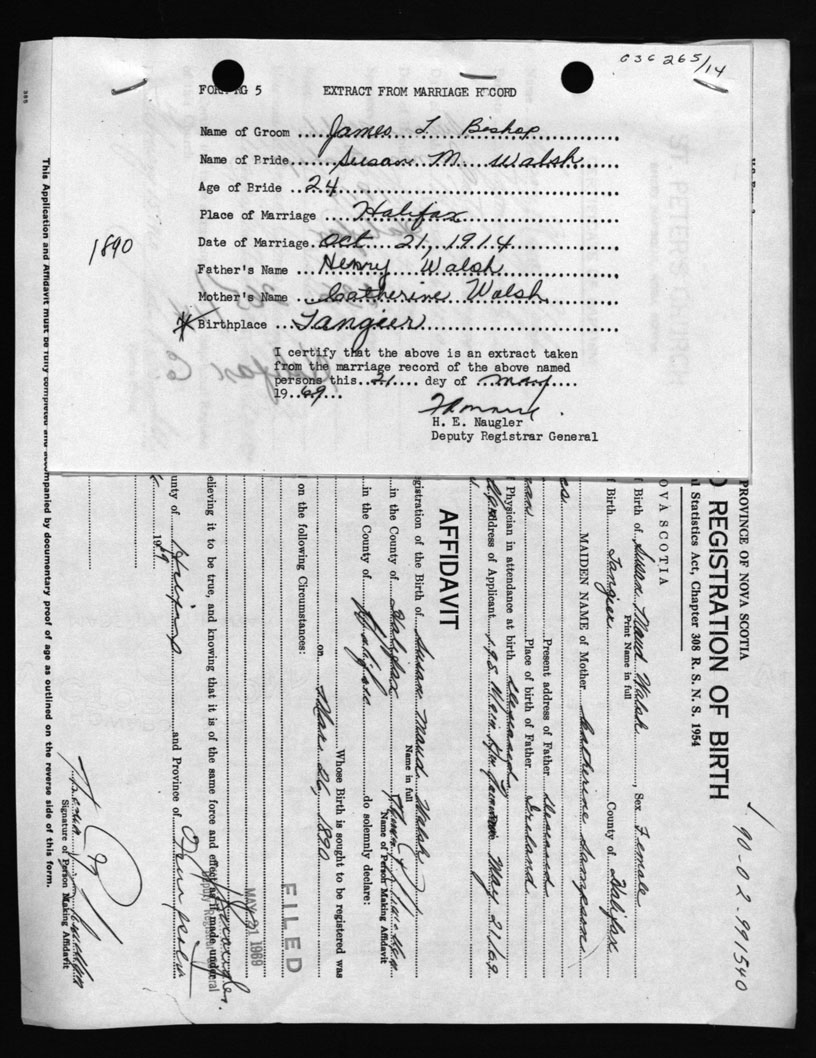 C36 265/14
FORM RG 5 EXTRACT FROM MARRIAGE RECORD
Name of Groom .... James L. Bishop
Name of Bride .... Susan M. Walsh
Age of Bride .. 24
Place of Marriage ... Halifax
Date of Marriage. Oct 21, 1914
1890
Father's Name ... Henry Walsh
Mother's Name ... Catherine Walsh
Birthplace ... Tangier
I certify that the above is an extract taken
from the marriage record of the above named
persons this .. 21 .... day of .. May ....
19..69...
H. E. Naugler
Deputy Registrar General
PROVINCE OF NOVA SCOTIA
REGISTRATION OF BIRTH
90-02-991540
l Statistics Act, Chapter 308 R. S. N. S. 1954
OVA SCOTIA
f Birth of Susan Maud Walsh, Sex Female
Print Name in full
f Birth, Tangier County of Halifax
MAIDEN NAME of Mother Catherine Sampson
Present address of Father Deceased
Place of birth of Father Ireland
Physician in attendance at birth Deceased
Address of Applicant 195 Main May 21/69
AFFIDAVIT
gistration of the Birth of Susan Maud Walsh
Name in full
in the County of Halifax
Name of Person Making Affidavit
in the County of Halifax do solemnly declare:
Whose Birth is sought to be registered was
on Mar. 26, 1890
on the following Circumstances:
FILED
MAY 21 1969
Deputy Registrar General
elieving it to be true, and knowing that it is of the same force and effect as if made under
unty of Halifax and Province of
19 69
Signature of Person Making Affidavit
This Application and Affidavit must be fully completed and accompanied by documentary proof of age as outlined on the reverse side of this form.